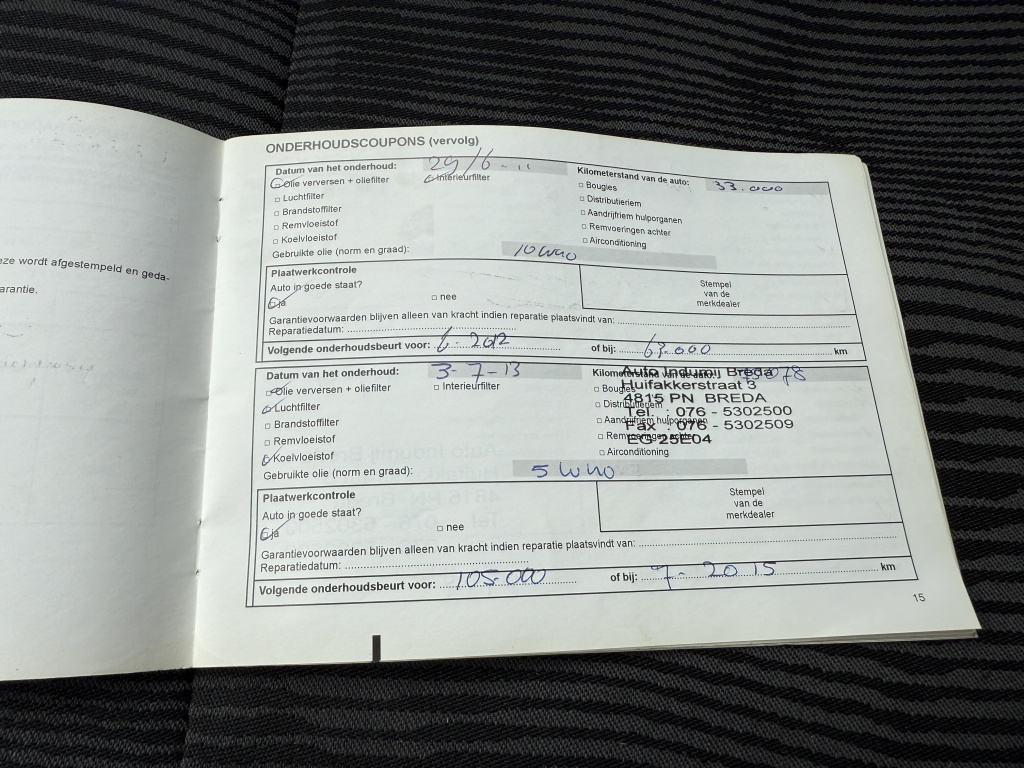 eze wordt afgestempeld en geda-
arantie.
ONDERHOUDSCOUPONS (vervolg)
Datum van het onderhoud: 29/6-11
Kilometerstand van de auto: 33.000
Olie verversen + oliefilter
Interieurfilter
Bougies
Luchtfilter
Distributieriem
Brandstoffilter
Aandrijfriem hulporganen
Remvloeistof
Remvoeringen achter
Koelvloeistof
Airconditioning
Gebruikte olie (norm en graad): 10W40
Plaatwerkcontrole
Auto in goede staat?
ja
nee
Stempel
van de
merkdealer
Garantievoorwaarden blijven alleen van kracht indien reparatie plaatsvindt van:
Reparatiedatum:
Volgende onderhoudsbeurt voor: 6-2012 of bij: 63.000 km
Datum van het onderhoud: 3-7-13
Kilometerstand van de auto:
Olie verversen + oliefilter
Interieurfilter
Bougies
Luchtfilter
Distributieriem
Brandstoffilter
Aandrijfriem hulporganen
Remvloeistof
Remvoeringen achter
Koelvloeistof
Airconditioning
Auto Indumij Breda
Huifakkerstraat 3
4815 PN BREDA
Tel. : 076 - 5302500
Fax : 076 - 5302509
EG 25E04
Gebruikte olie (norm en graad): 5W40
Plaatwerkcontrole
Auto in goede staat?
ja
nee
Stempel
van de
merkdealer
Garantievoorwaarden blijven alleen van kracht indien reparatie plaatsvindt van:
Reparatiedatum:
Volgende onderhoudsbeurt voor: 105.000 of bij: 7-2015 km
15